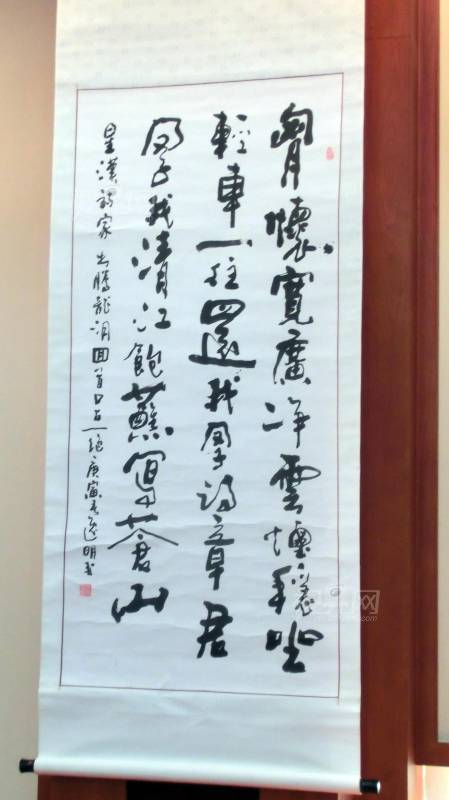 胷懷寬廣淨雲煙穩坐
輕車一往還我學詩章君
學我清江飽蘸寫蒼山
星漢詩家出騰龍洞囬首口占一絕庚寅逸明書